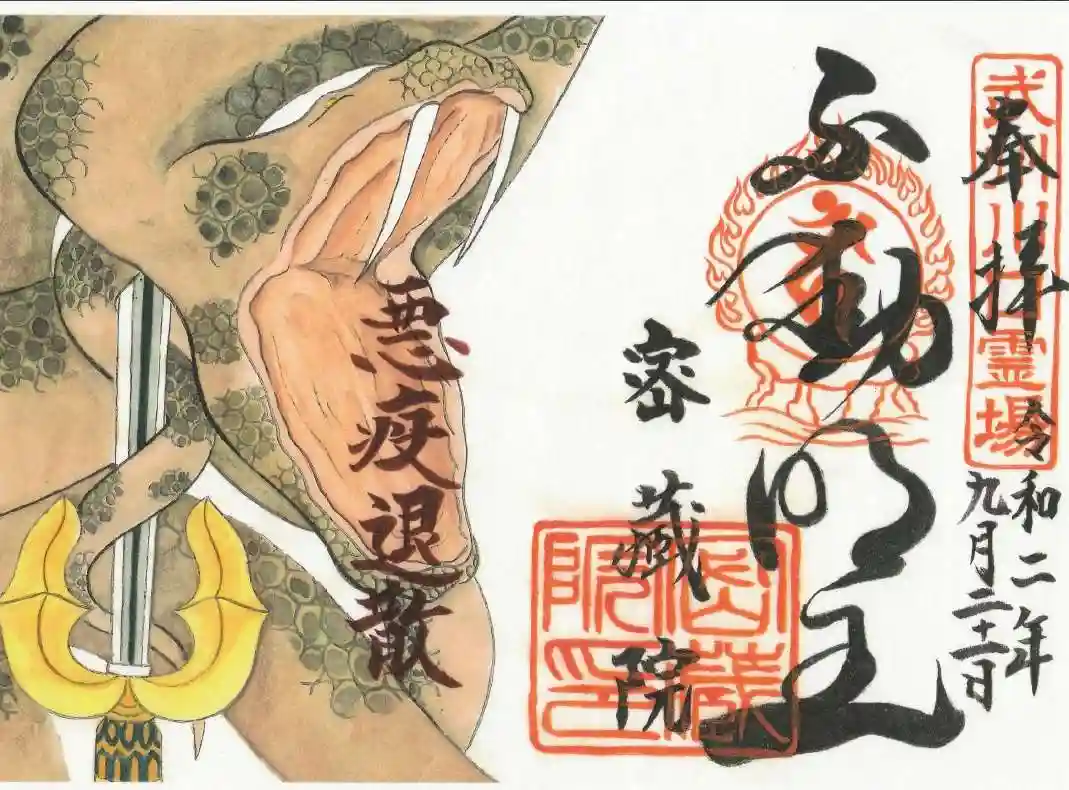 武州川口霊場
奉拝
令和二年
九月二十二日
不動明王
密藏院
密藏院印
悪疫退散